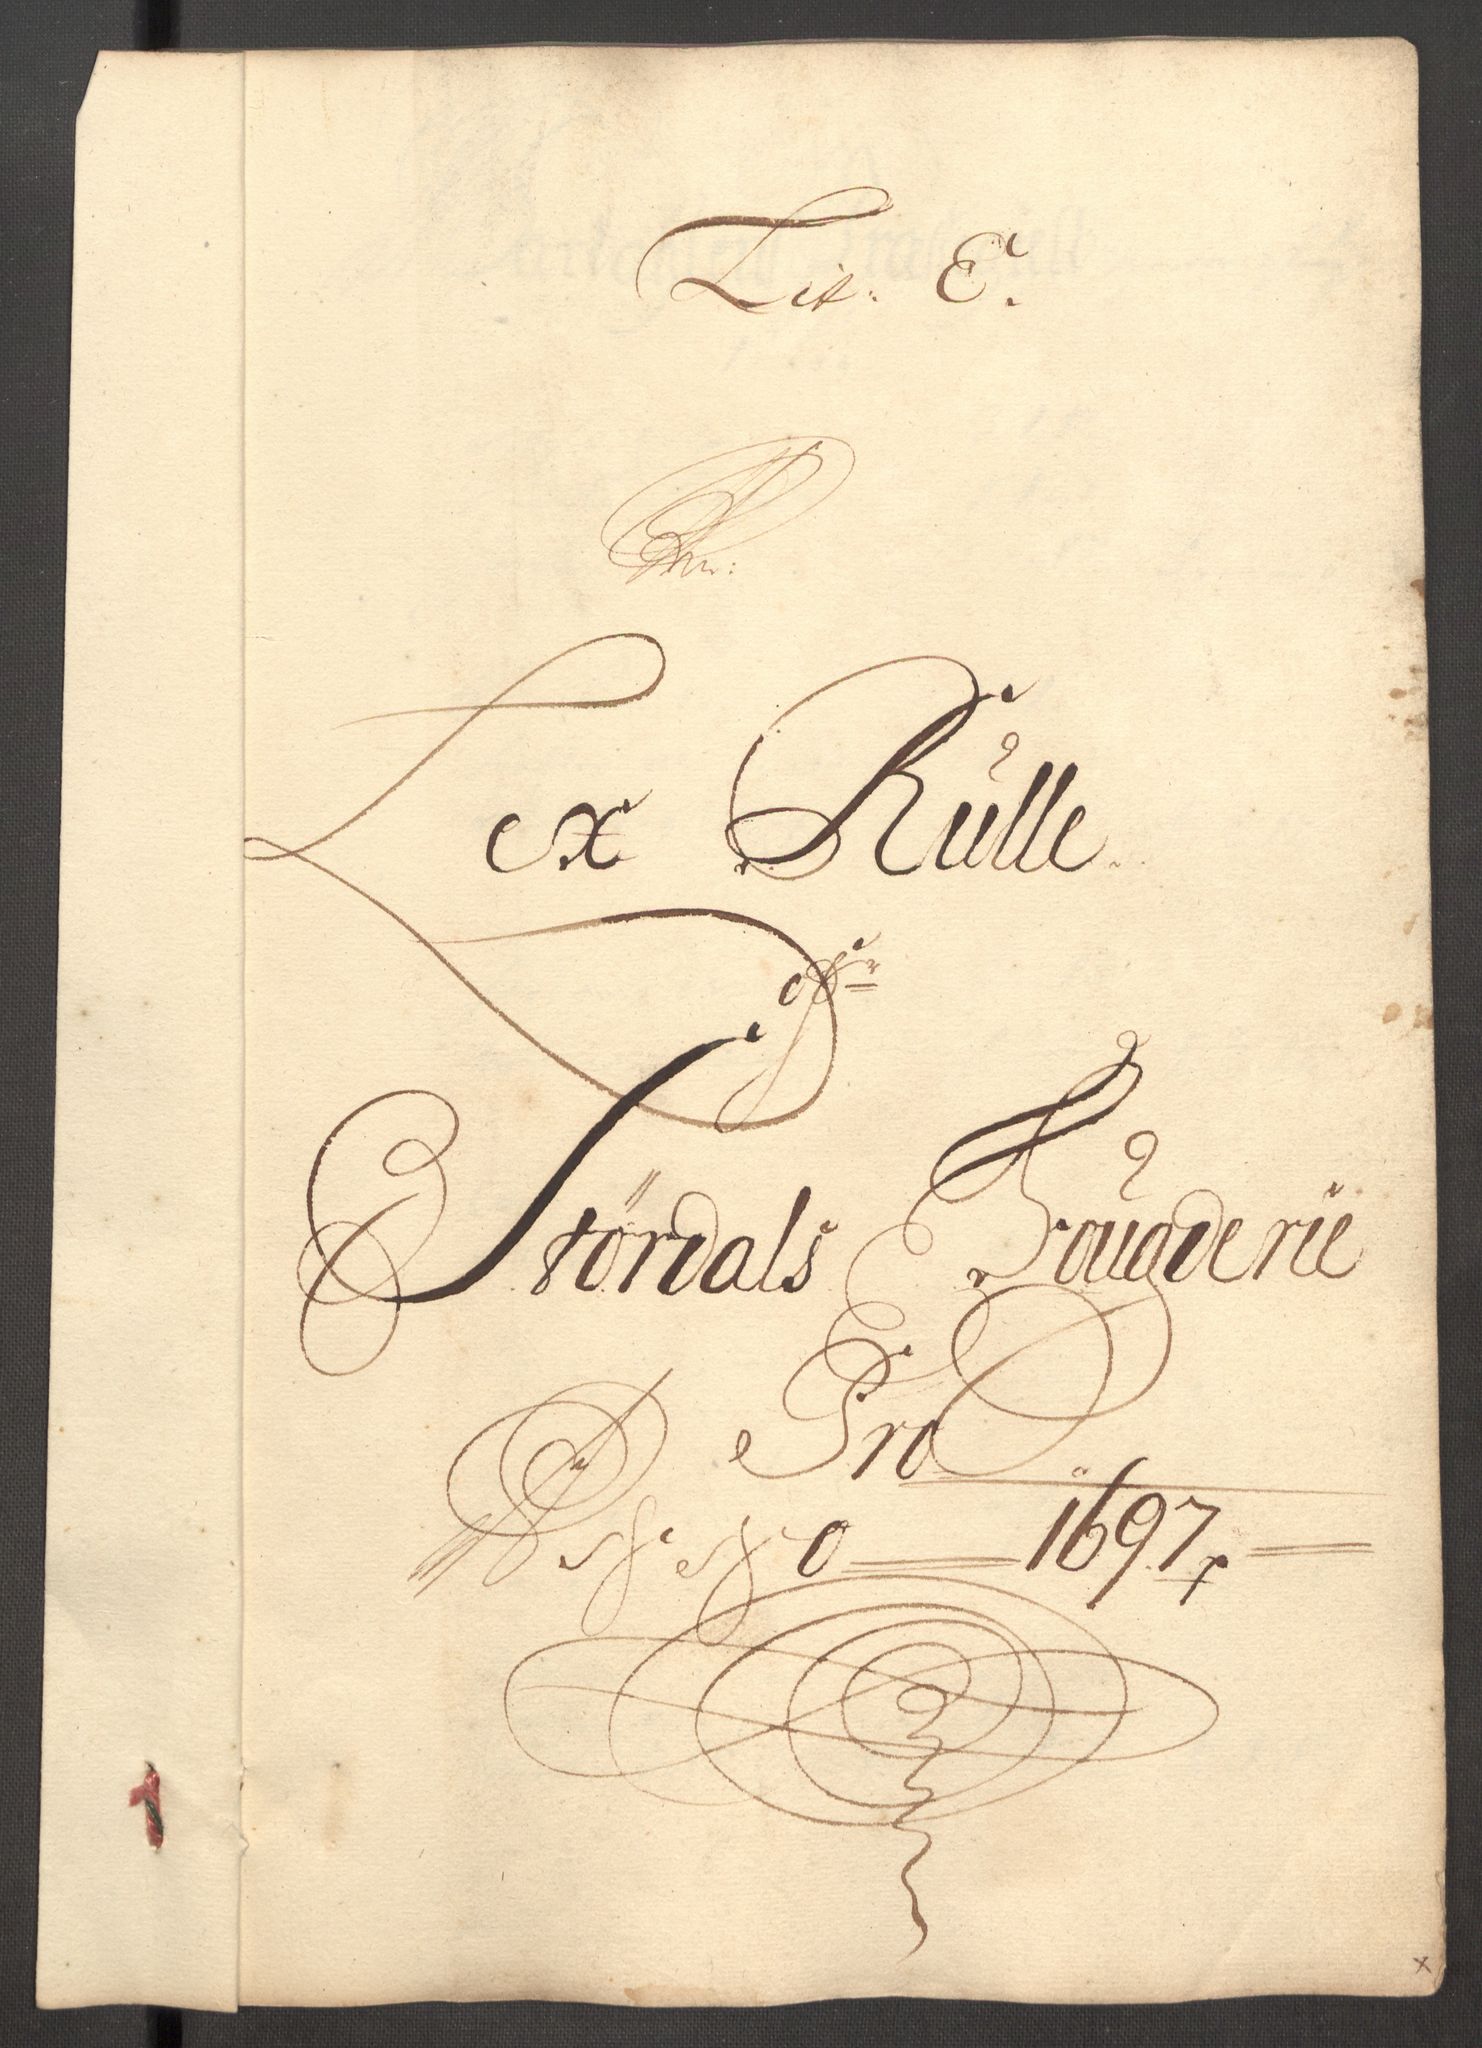 Lit: E.
Lex Rülle
Stördals Fougderie
Pro
Anno 1697